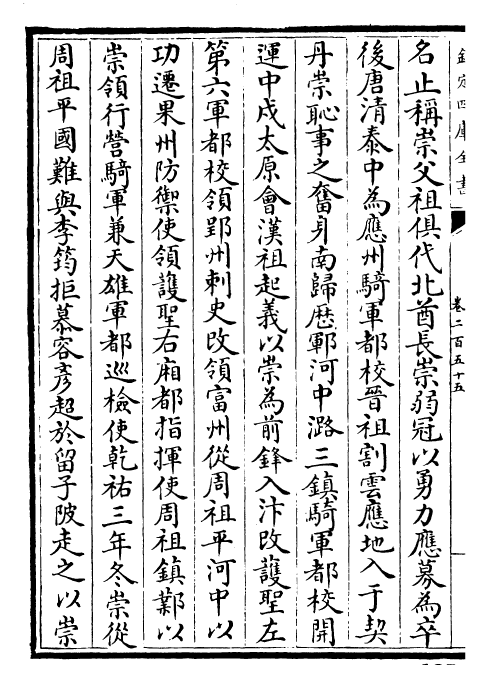 欽定四庫全書
卷二百五十五
名止稱崇父祖俱代北酋長崇弱冠以勇力應募為卒
後唐清泰中為應州騎軍都校晉祖割雲應地入于契
丹崇恥事之奮身南歸歴鄆河中潞三鎮騎軍都校開
運中戍太原會漢祖起義以崇為前鋒入汴改護聖左
第六軍都校領郢州刺史改領富州從周祖平河中以
功遷果州防禦使領護聖右廂都指揮使周祖鎮鄴以
崇領行營騎軍兼天雄軍都巡檢使乾祐三年冬崇從
周祖平國難與李筠拒慕容彥超於留子陂走之以崇